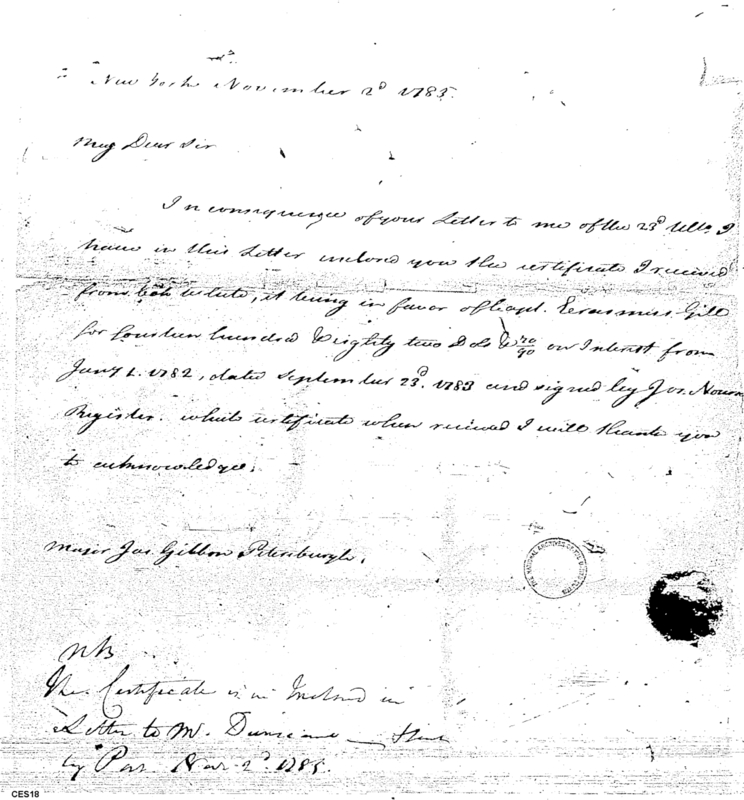 New York November 2d 1785.
My Dear Sir
In consequence of your Letter to me of the 23d Ulto. I
have in this Letter inclosed you the certificate I received
from estate, it being in favor of Capt. Erasmus Gill
for fourteen hundred & Eighty two Dols & 70/90 on Interest from
Jany 1. 1782, dated September 23d. 1783 and signed by Jos. Nourse
Register. which certificate when recieved I will thank you
to acknowledge.
Major Jas. Gibbon Petersburgh.
THE NATIONAL ARCHIVES OF THE UNITED STATES
NB
The Certificate is in Inclosd in
Letter to Mr. Duncan
by Nov. 2d. 1785.
CES18